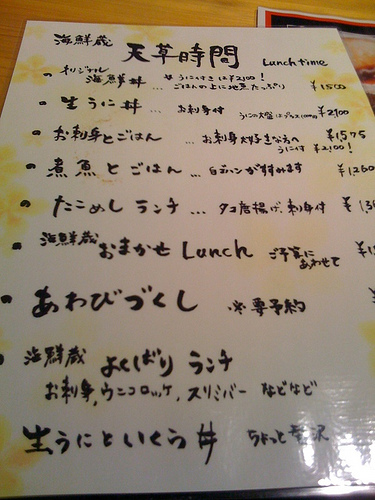 海鮮蔵
天草時間 Lunch time
オリジナル ※うに付きは¥2100!
海鮮丼 … ごはんの上に地魚たっぷり ¥1500
生うに丼 … お刺身付 ¥2100
お刺身とごはん … お刺身大好きな方へ ¥1575
うに付 ¥2100!
煮魚とごはん … 白ゴハンがすすみます ¥1260
たこめし ランチ … タコ唐揚げ、刺身付 ¥
海鮮蔵 おまかせ Lunch ご予算にあわせて
あわびづくし ※要予約
海鮮蔵 よくばり ランチ
お刺身、ウニコロッケ、スリミバー などなど
生うにといくら丼 ちょっと贅沢